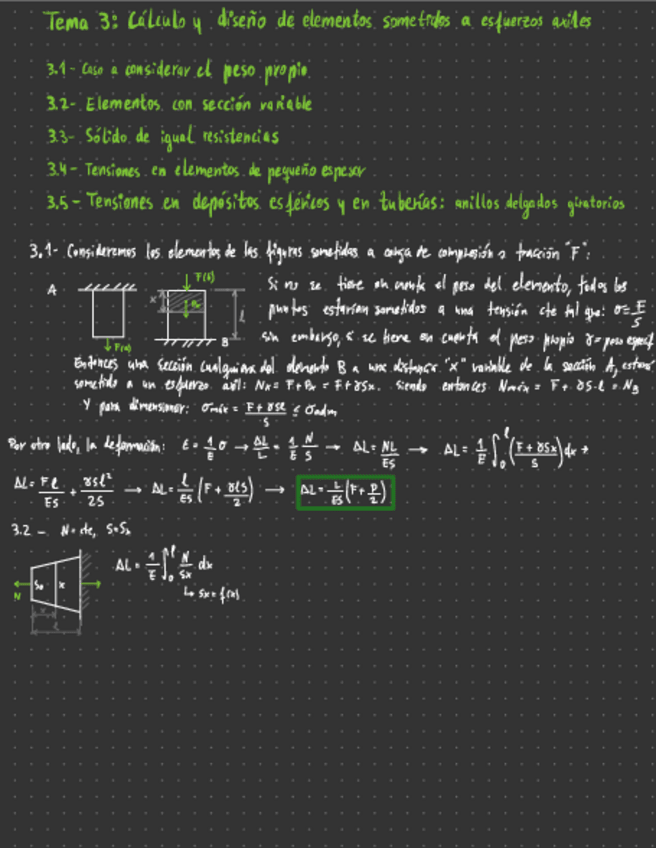 Tema 3: Cálculo y diseño de elementos sometidos a esfuerzos axiles
3.1- Caso a considerar el peso propio
3.2- Elementos con sección variable
3.3- Sólido de igual resistencias
3.4- Tensiones en elementos de pequeño espesor
3.5- Tensiones en depósitos esféricos y en tuberías: anillos delgados giratorios
3.1- Consideremos los elementos de las figuras sometidos a carga de compresión o tracción "F":
A
F(a)
F(b)
x
Px
l
B
Si no se tiene en cuenta el peso del elemento, todos los
puntos estarían sometidos a una tensión cte tal que: σ = F/S
sin embargo, si se tiene en cuenta el peso propio γ = peso
Entonces una sección cualquiera del elemento B a una distancia "x" variable de la sección A,
sometido a un esfuerzo axil: Nx = F + Px = F + γSx. Siendo entonces Nmáx = F + γS·l = NB
Y para dimensionar: σmáx = (F + γSl)/S ≤ σadm
Por otro lado, la deformación: ε = 1/E σ → ΔL/L = 1/E N/S → ΔL = NL/ES → ΔL = 1/E ∫₀ˡ ((F + γSx)/S) dx →
ΔL = Fl/ES + γSl²/2S → ΔL = l/ES (F + γlS/2) → ΔL = L/ES (F + P/2)
3.2 - N = cte, S = Sx
N
So
x
x
L
ΔL = 1/E ∫₀ˡ N/Sx dx
↳ Sx = f(x)